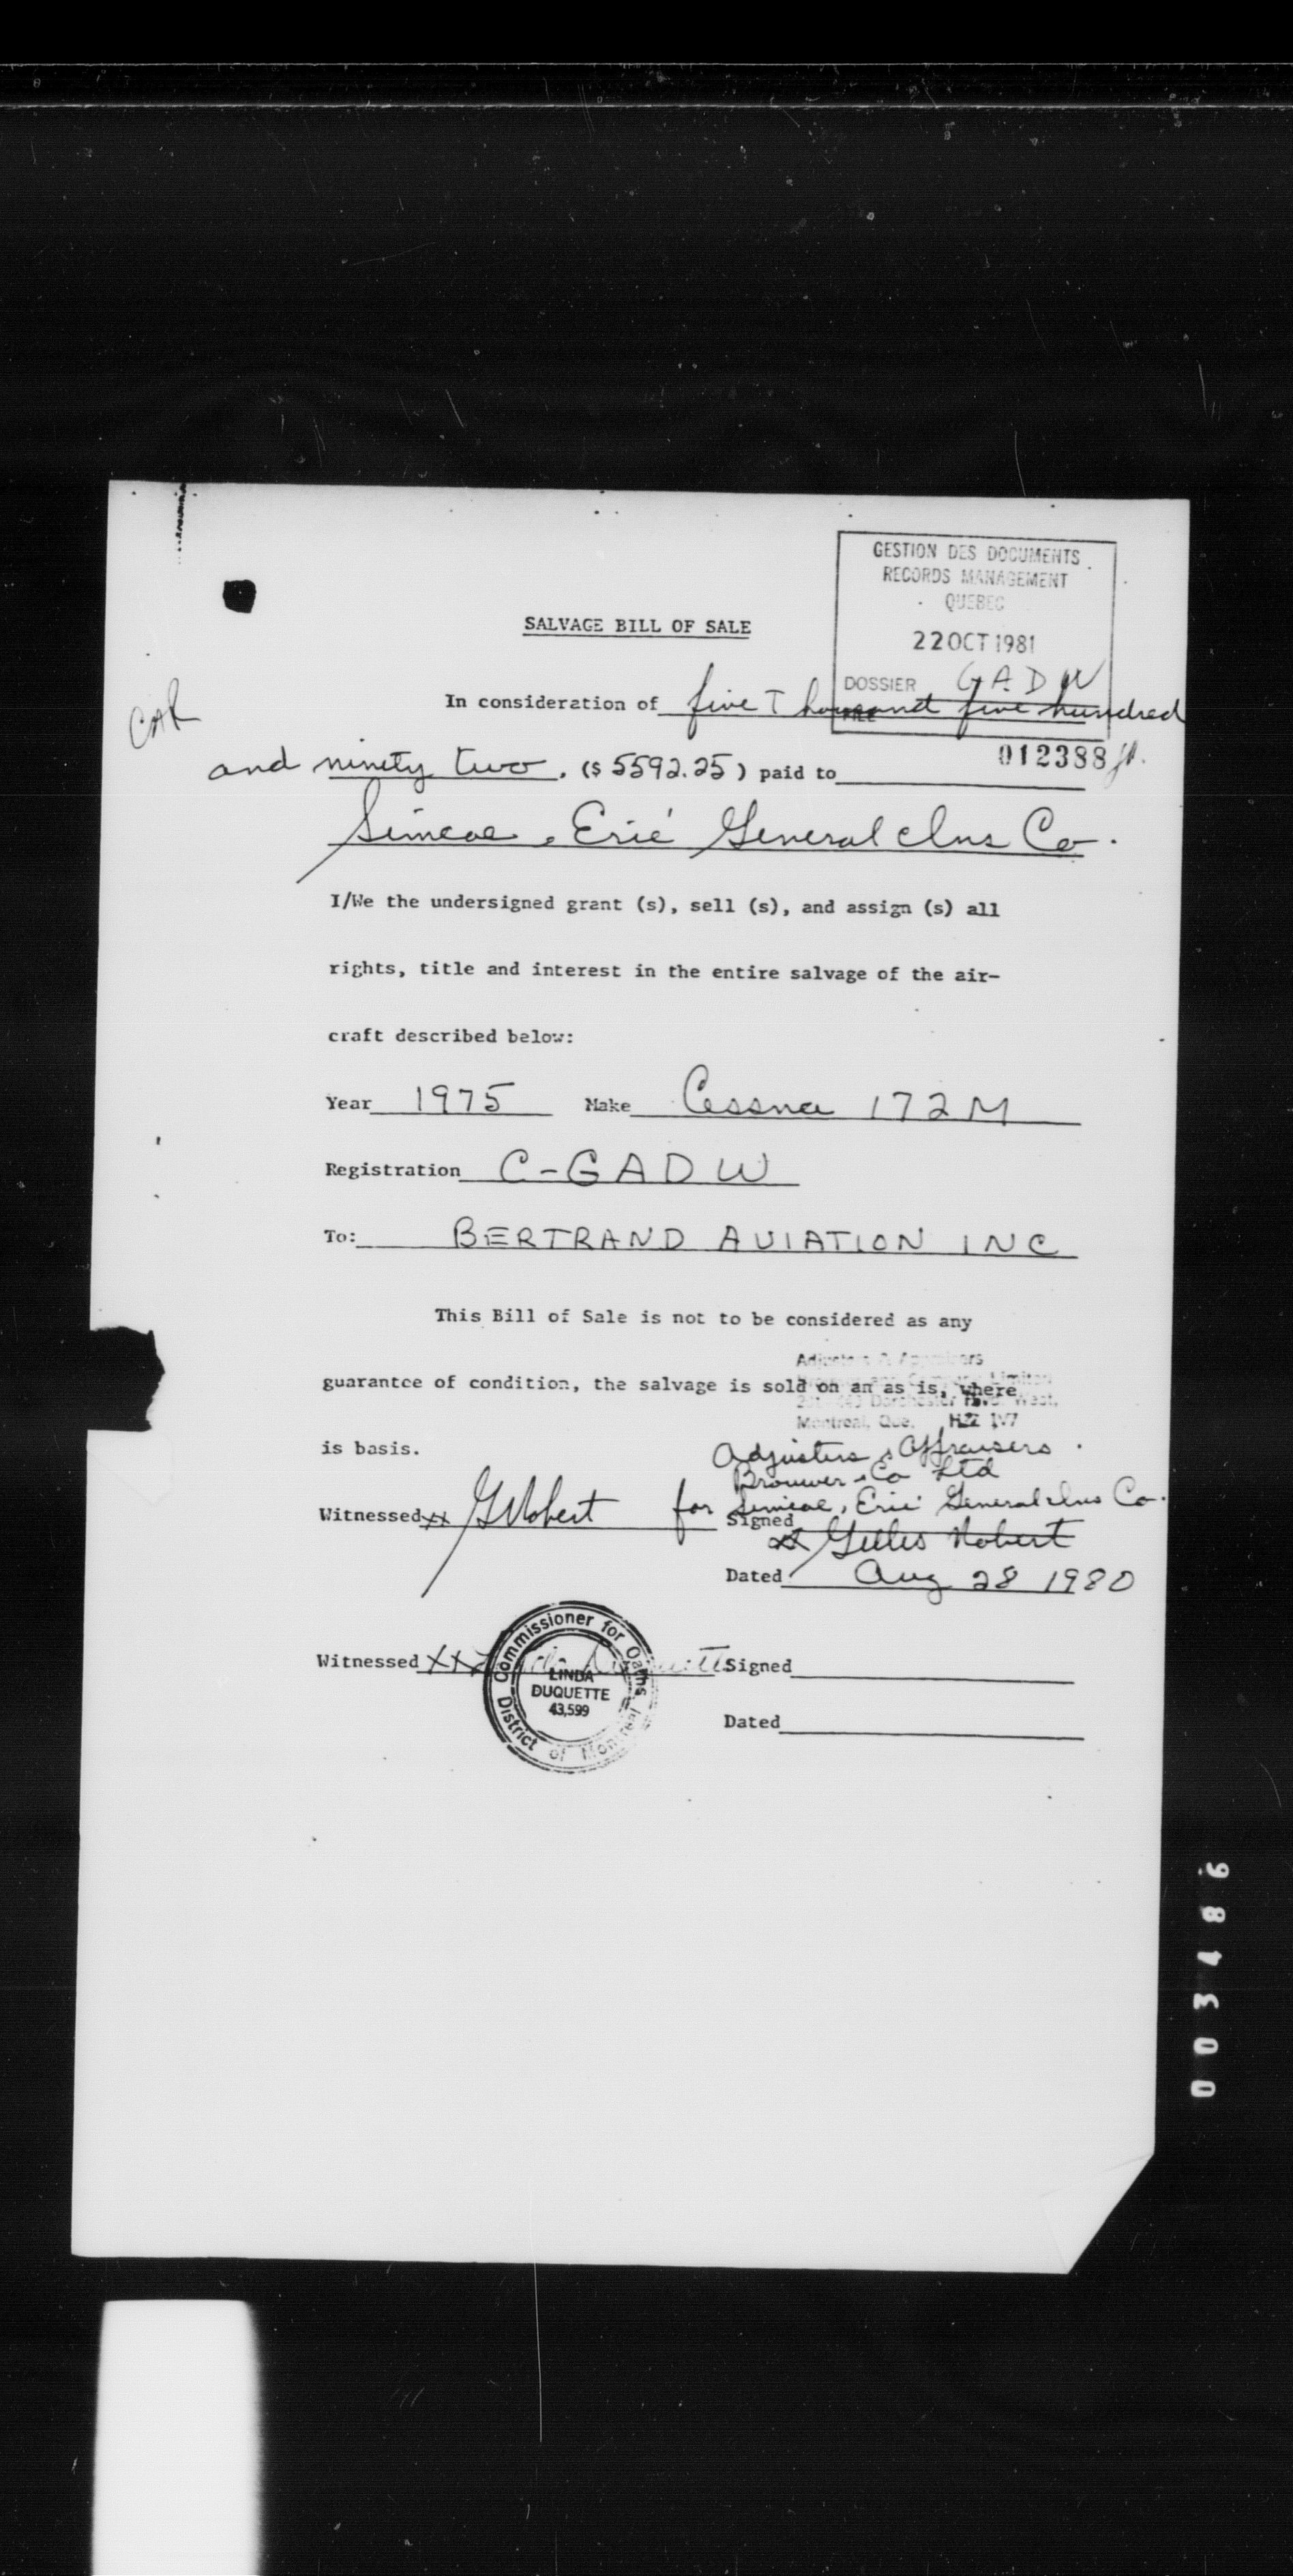 GESTION DES DOCUMENTS
RECORDS MANAGEMENT
QUEBEC
22 OCT 1981
DOSSIER GADW
FILE
012388
SALVAGE BILL OF SALE
CAR
In consideration of five Thousand five hundred
and ninety two. ($ 5592.25) paid to
Simcoe, Erie General Ins Co.
I/We the undersigned grant (s), sell (s), and assign (s) all
rights, title and interest in the entire salvage of the air-
craft described below:
Year 1975 Make Cessna 172 M
Registration C-GADW
To: BERTRAND AVIATION INC
This Bill of Sale is not to be considered as any
Adjusters & Appraisers
guarantee of condition, the salvage is sold on an as is, where
Dorchester West,
Montreal, Que. H2Z 1V7
is basis.
Adjusters & Appraisers.
Brouwer & Co Ltd
for Simcoe, Erie General Ins Co.
Witnessed xx G Robert Signed
xx Gilles Robert
Dated Aug 28 1980
Witnessed XX Linda Duquette Signed
Commissioner for Oaths
LINDA
DUQUETTE
43,599
District of Montreal
Dated
003486